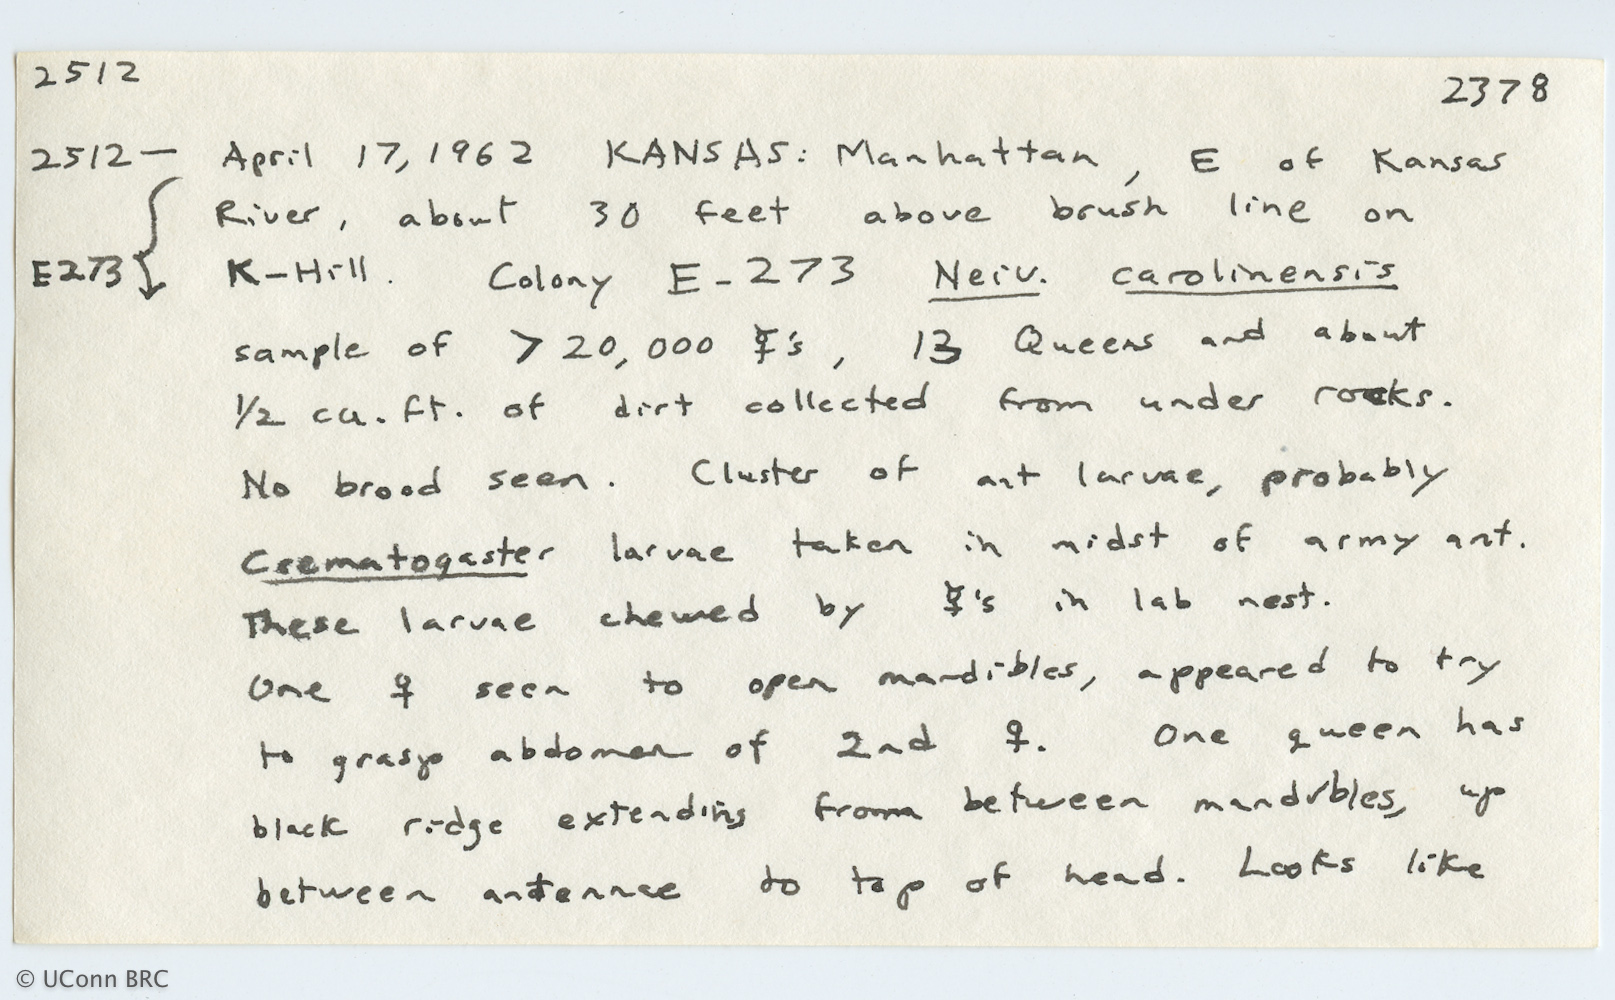 2512 2378
2512— April 17, 1962 KANSAS: Manhattan, E of Kansas
River, about 30 feet above brush line on
E273 K-Hill. Colony E-273 Neiv. carolinensis
sample of > 20,000 ☿'s, 13 Queens and about
1/2 cu. ft. of dirt collected from under rocks.
No brood seen. Cluster of ant larvae, probably
Crematogaster larvae taken in midst of army ant.
These larvae chewed by ☿'s in lab nest.
One ♀ seen to open mandibles, appeared to try
to grasp abdomen of 2nd ♀. One queen has
black ridge extending from between mandibles, up
between antennae to top of head. Looks like
© UConn BRC